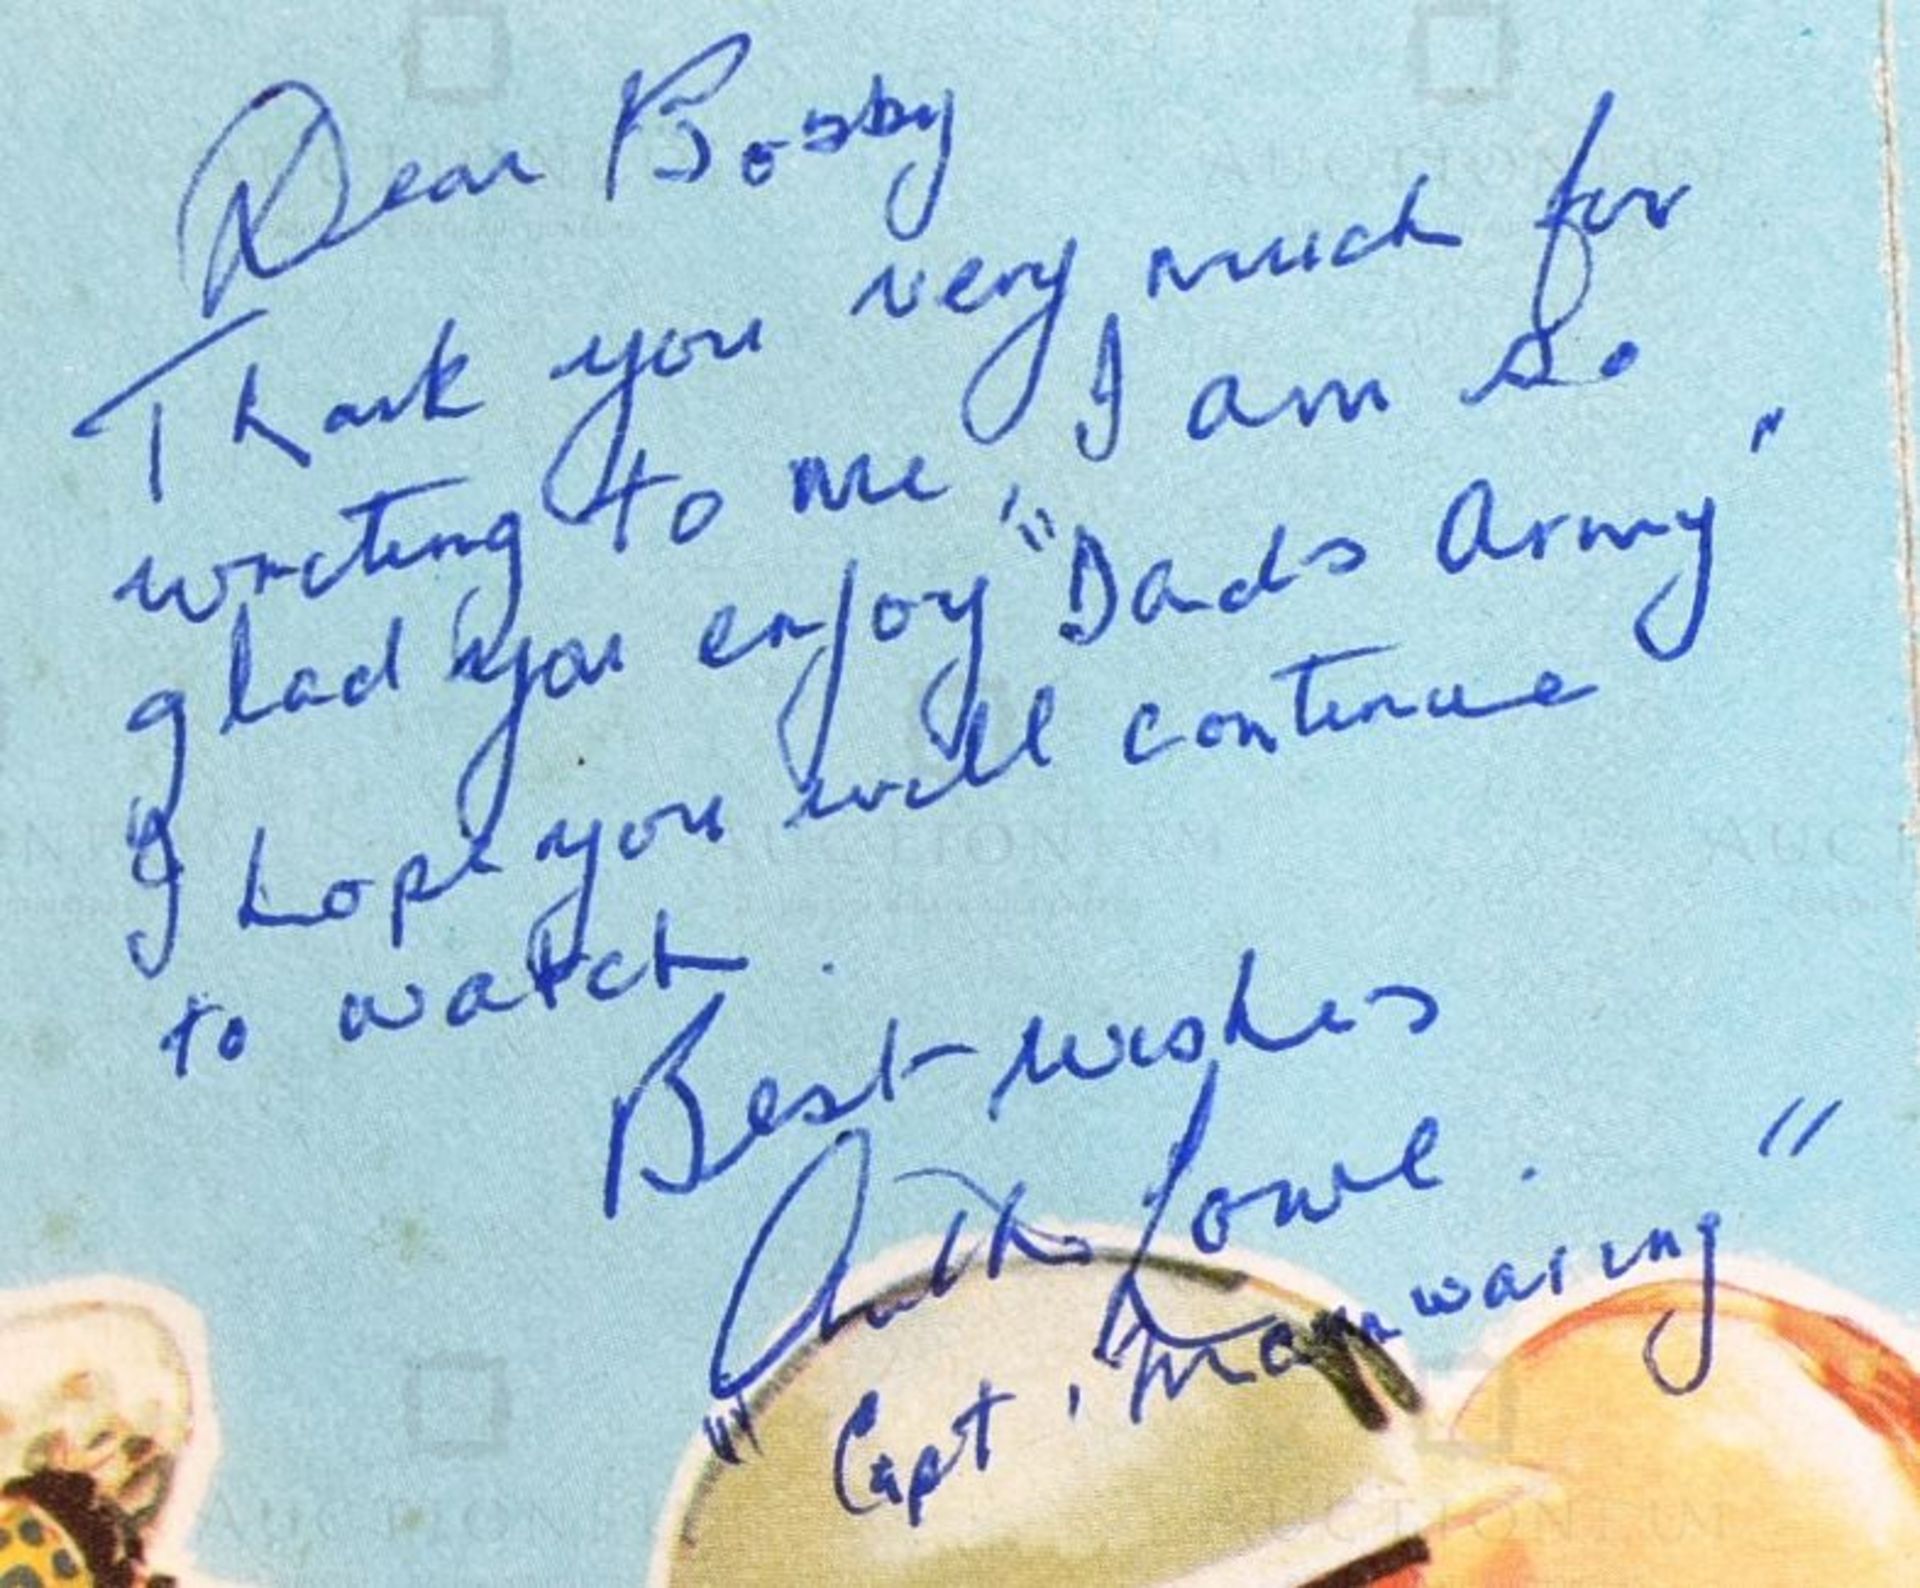 Dear Bobby
Thank you very much for
writing to me, I am so
glad you enjoy "Dads Army"
I hope you will continue
to watch.
Best wishes
Arthur Lowe.
"Capt. Mannwaring"